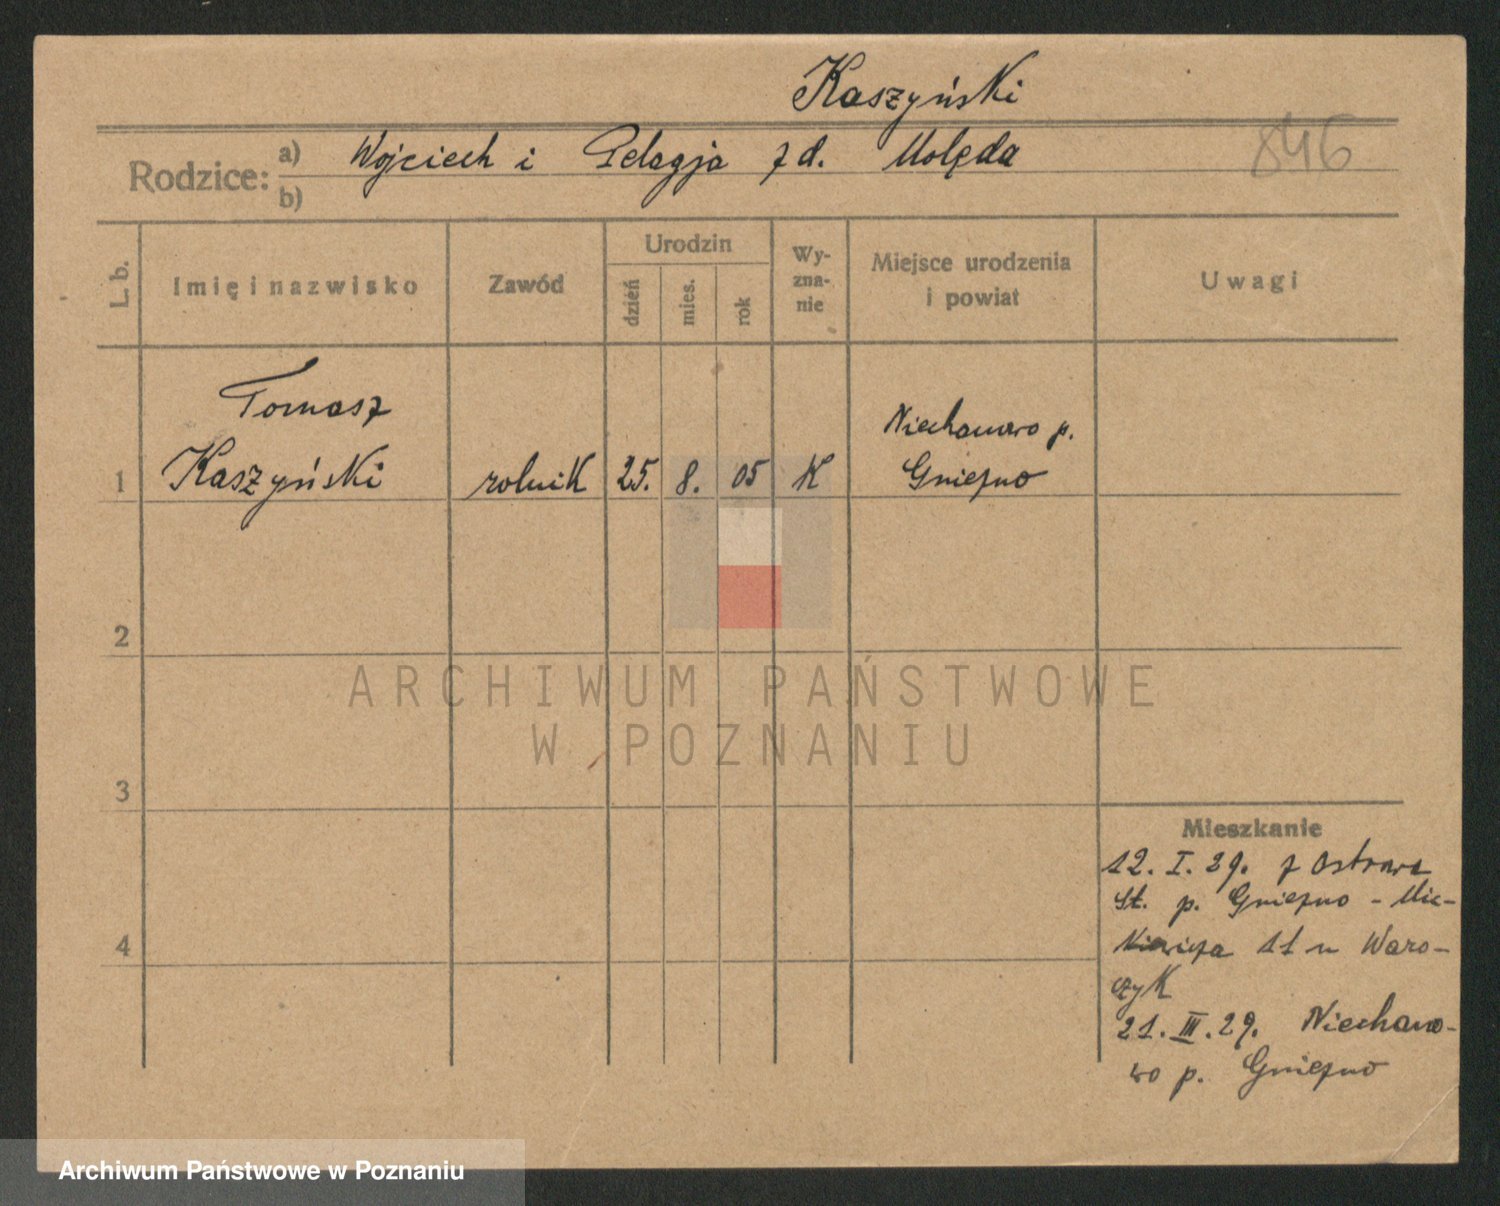 Kaszyński
846
Rodzice: a) Wojciech i Pelagja z d. Molęda
b)
L. b. Imię i nazwisko Zawód Urodzin dzień mies. rok Wyznanie Miejsce urodzenia i powiat Uwagi
Tomasz Niechanowo p.
1 Kaszyński rolnik 25. 8. 05 K Gniezno
2
ARCHIWUM PAŃSTWOWE
W POZNANIU
3
Mieszkanie
12. I. 29. z Ostrowa
St. p. Gniezno - Mic-
4
kiewicza 11 u Waro-
czyk
21. III. 29. Niechano-
wo p. Gniezno
Archiwum Państwowe w Poznaniu